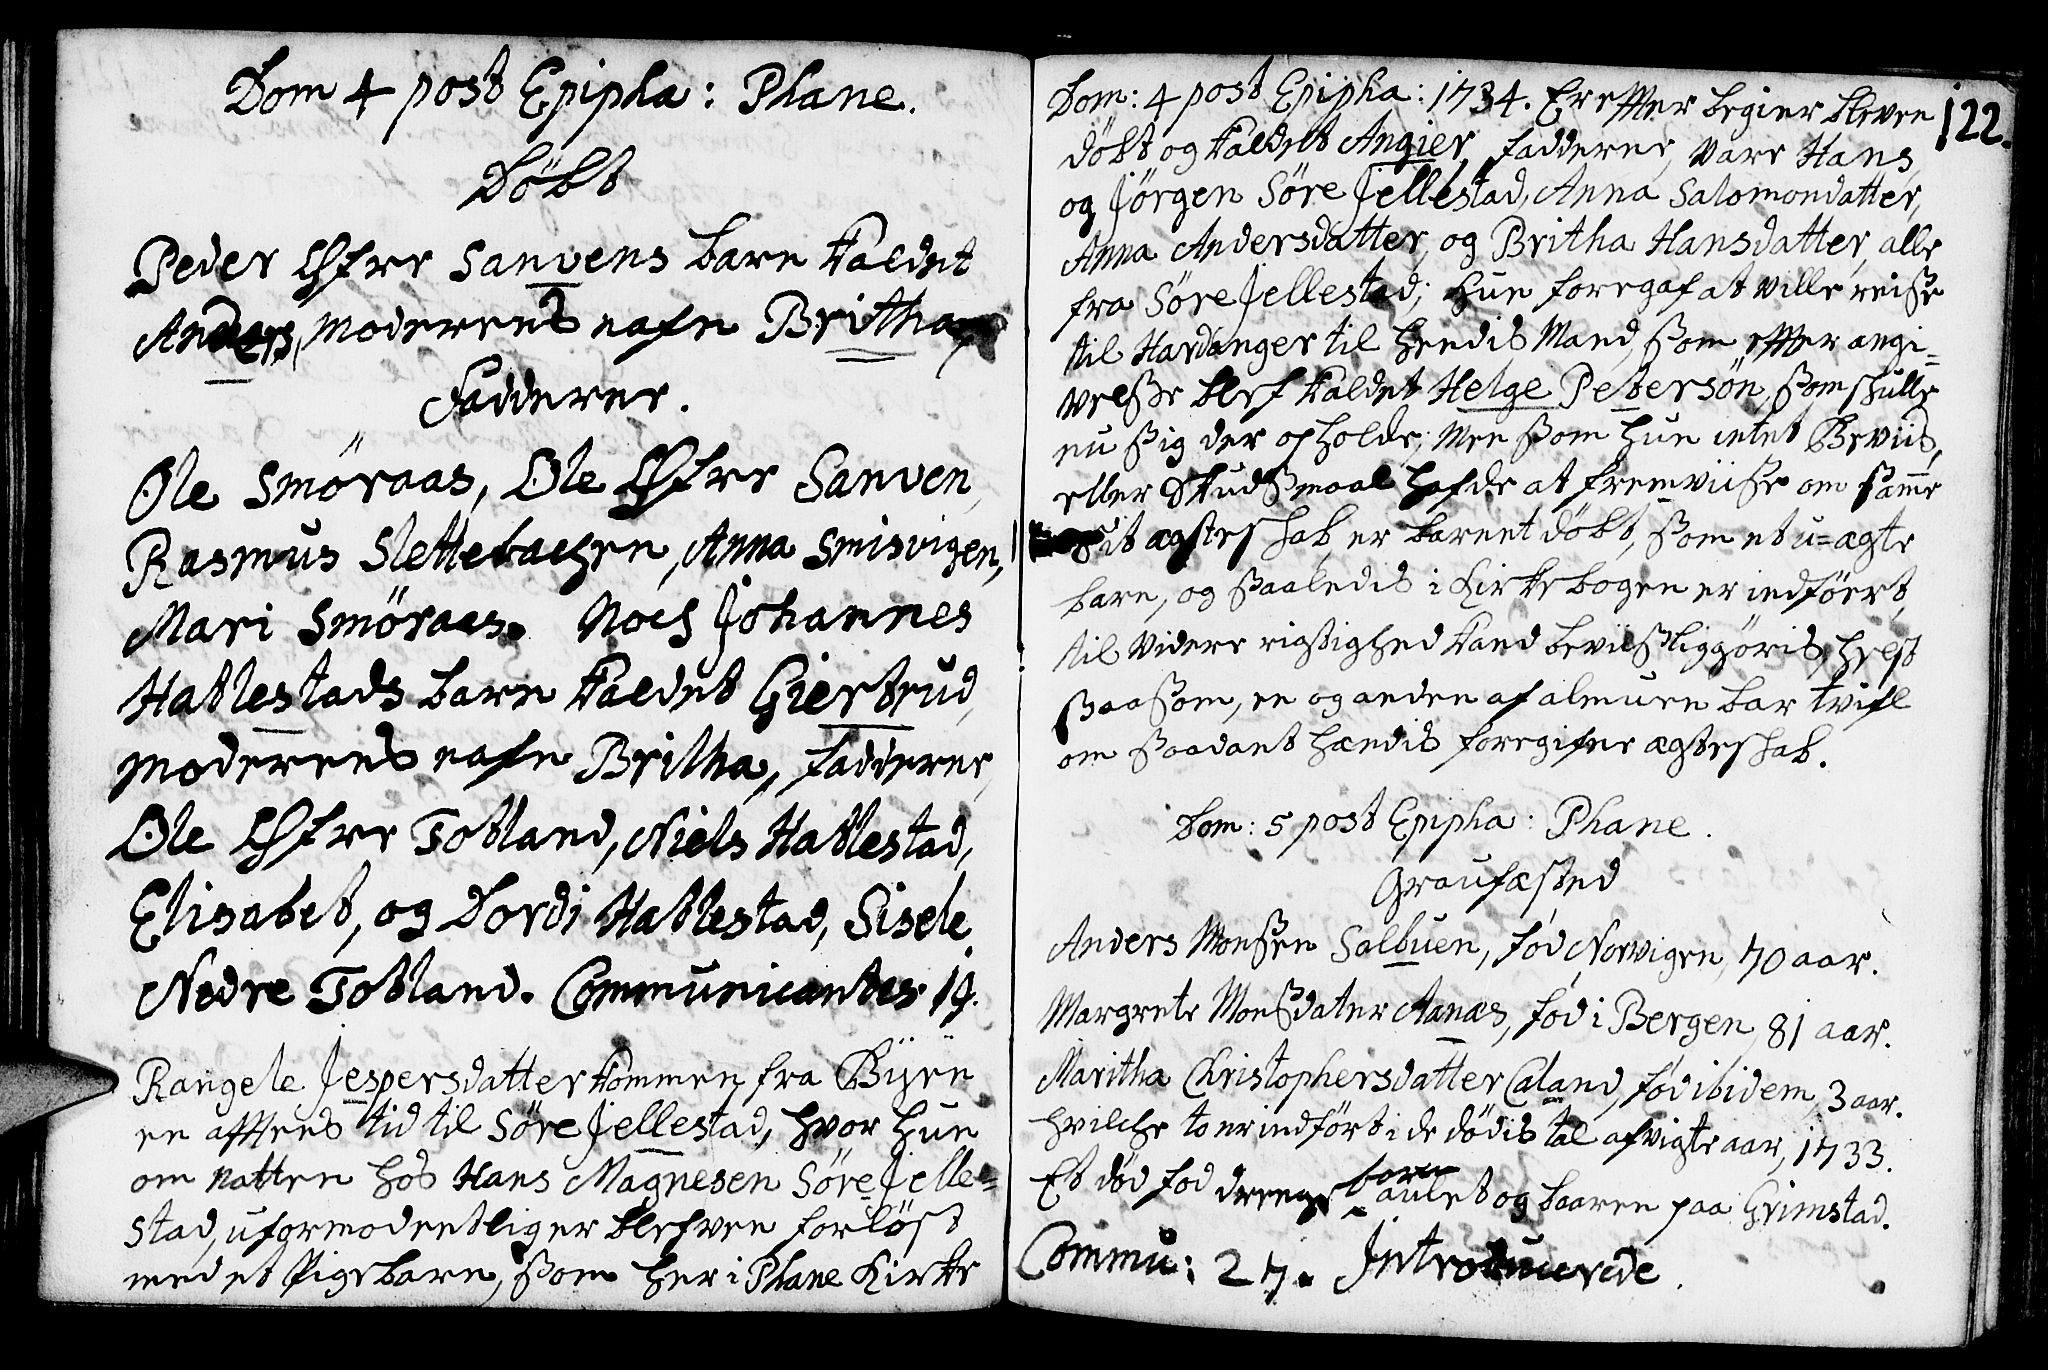 Dom 4 post Epipha: Phane.
Döbt
Peder Øfre Sanvens barn kaldet
Anders, moderens nafn Britha,
Fadderne.
Ole Smöraas, Ole Øfre Sanven,
Rasmus Slettebachen, Anna Smisvigen,
Mari Smöraas. Noch Johannes
Hatlestads barn kaldet Giertrud,
moderens nafn Britha, fadderne,
Ole Øfre Totland, Niels Hatlestad,
Elisabet, og Dordi Hatlestad, Sisele
Nedre Totland. Communicantes 19.
Rangele Jespersdatter kommen fra Byen
en afftens tid til Söre Jellestad, hvor hun
om natten hos Hans Magnesen Söre Jelle=
stad, uformodentliger blefven forlöst
med et Pigebarn, som her i Phane Kirke
122.
Dom: 4 post Epipha: 1734. Er effter begier bleven
döbt og kaldet Angier, fadderne, vare Hans
og Jörgen Söre Jellestad, Anna Salomondatter,
Anna Andersdatter, og Britha Hansdatter, alle
fra Söre Jellestad; hun foregaf at ville reise
til Hardanger til hendis Mand, som effter angi=
velse blef kaldet Helge Petersön, som skulle
nu sig der opholde; men som hun intet Beviis,
eller Skudsmaal hafde at fremviise om samme
sit ægteskab, er barnet döbt, som et u=ægte
barn, og saaledis i Kirkebogen er indföert,
til videre rigtighed kand beviisliggöris, helst
saasom, en og anden af almuen bar tvifl
om saadant hændis foregifne ægteskab.
Dom: 5 post Epipha: Phane.
Graufæsted
Anders Monsen Salbuen, föd Norvigen, 70 aar.
Margrete Monsdater Aanæs, föd i Bergen, 81 aar.
Maritha Christophersdatter Caland, föd ibidem, 3 aar.
hvilche to er indfört i de dödis tal afvigte aar, 1733.
Et död föd drenge barn aulet og baaren paa Grimstad.
Commu: 27. Introducerede.